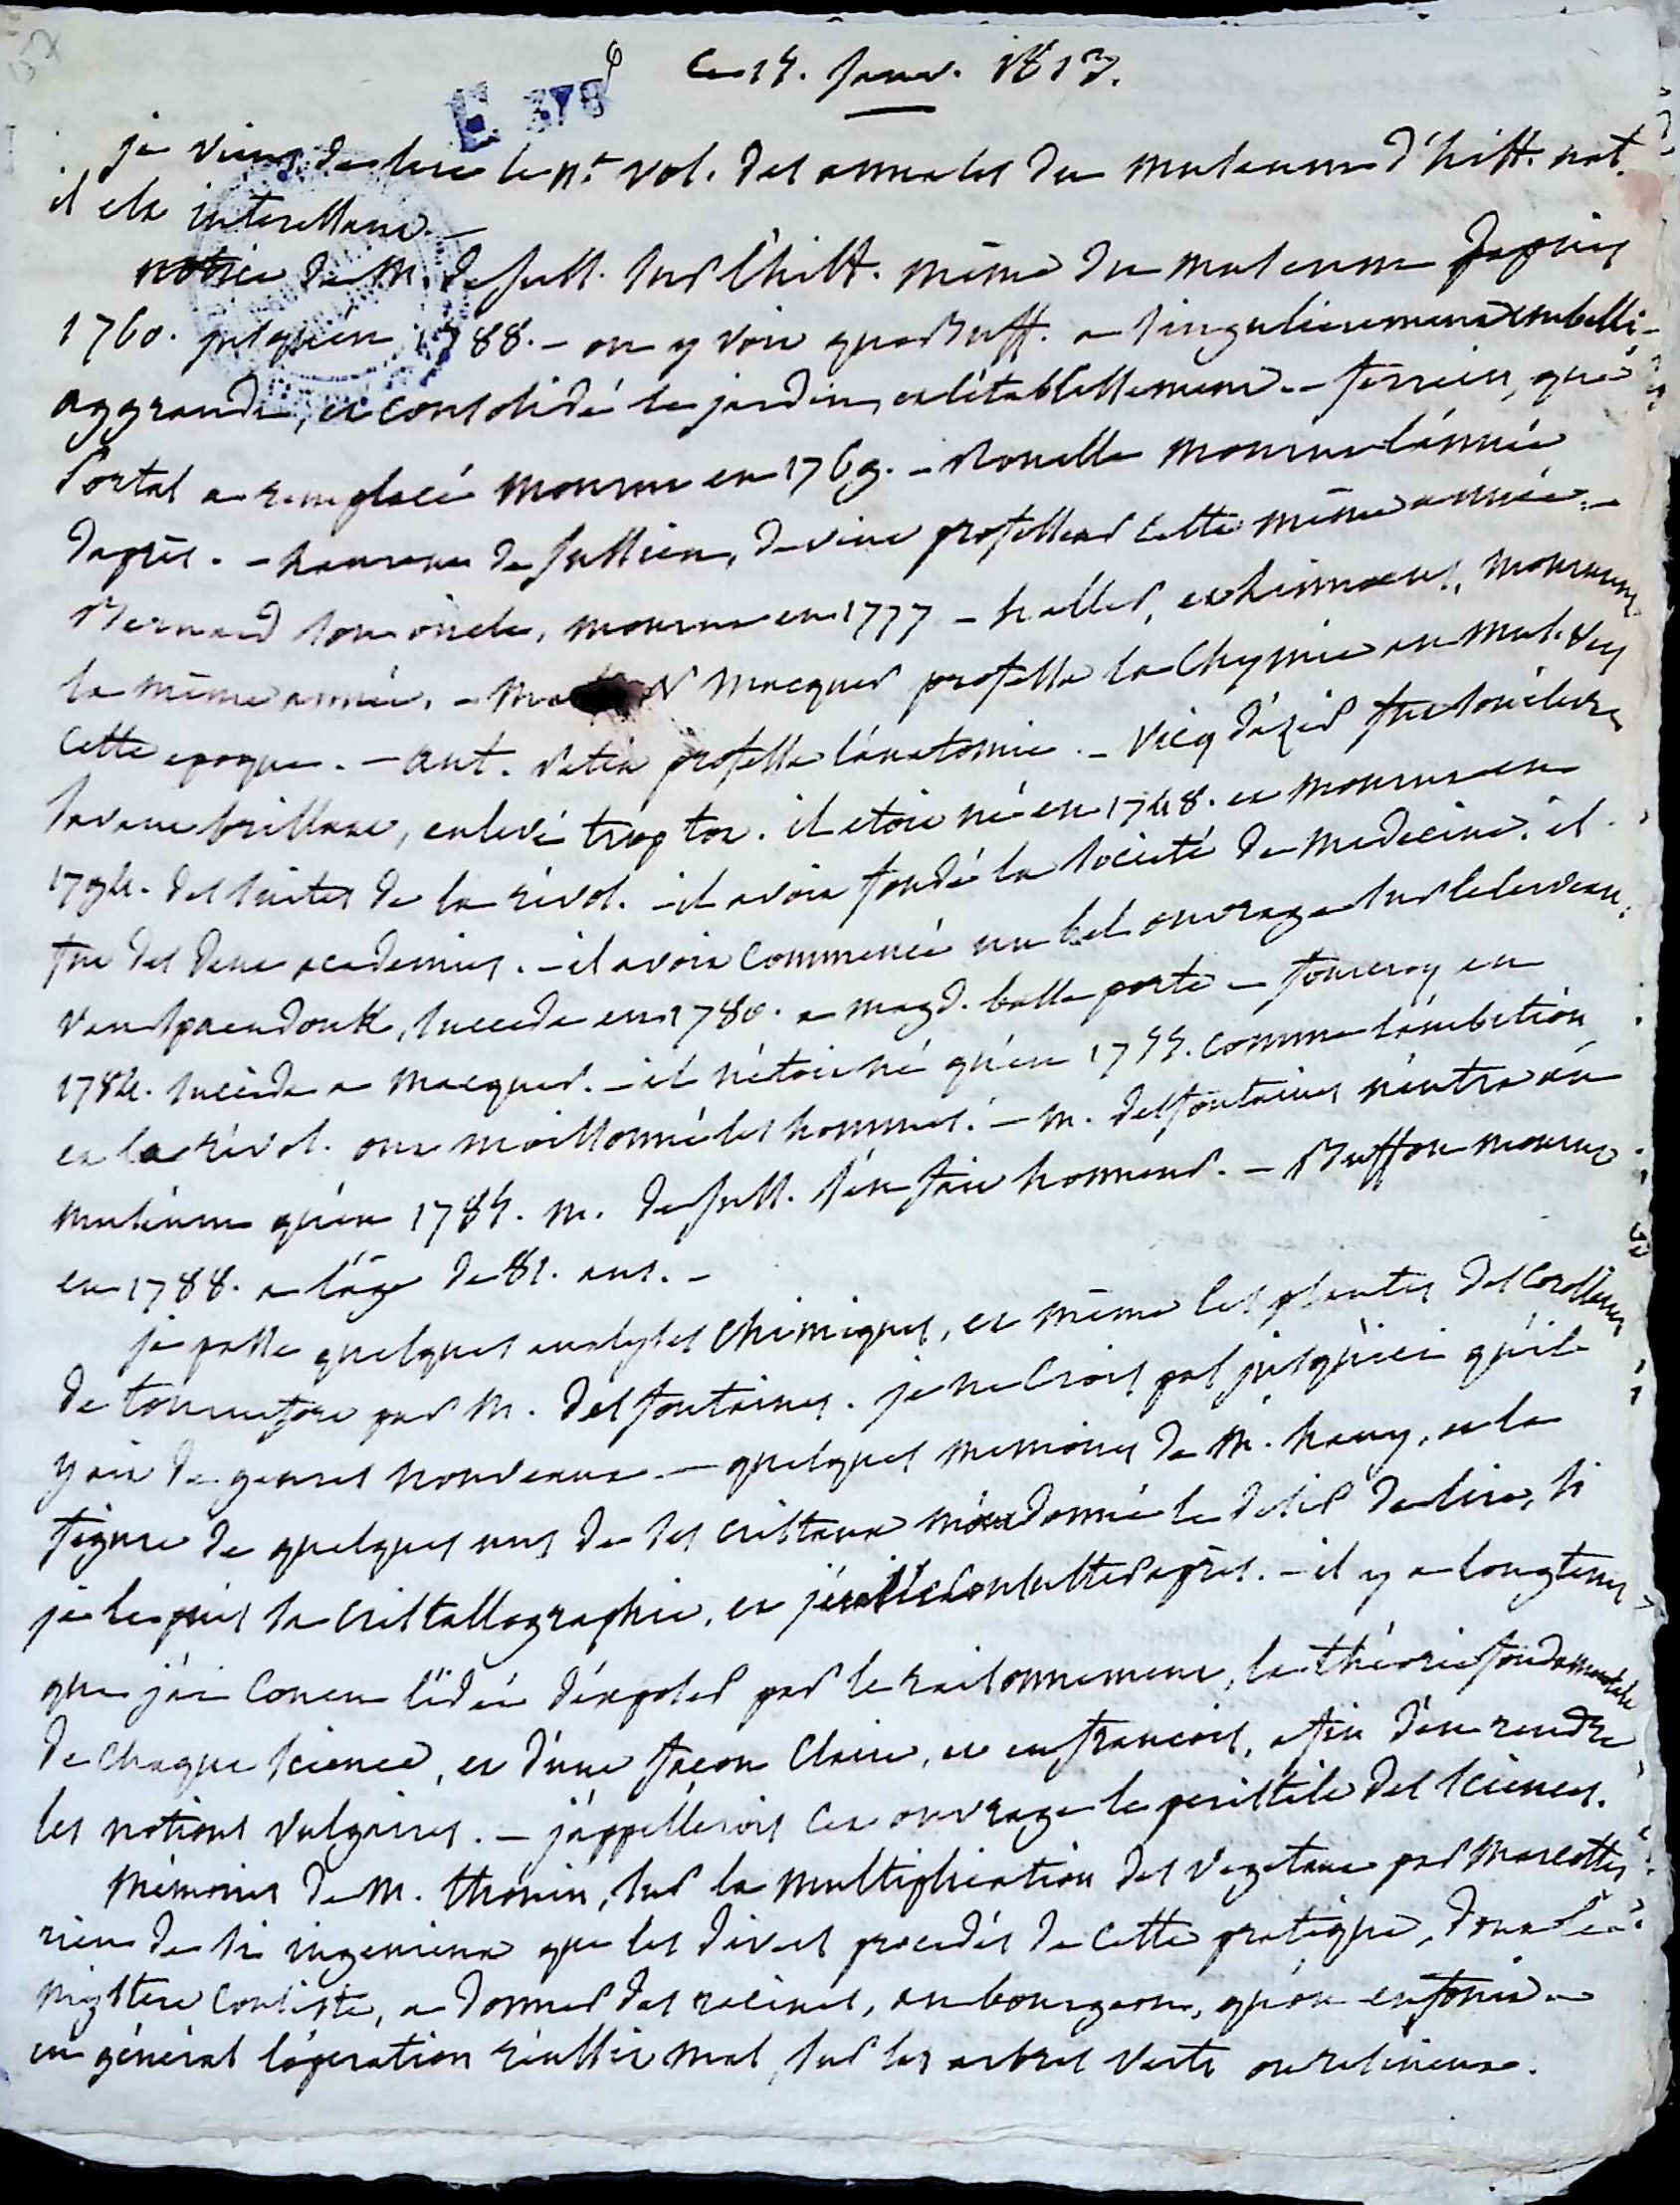 157
E 378
Ce 14. janv. 1813.
je viens de lire le 11.e vol. des annales du museum d'hist. nat.
il est interessant. —
notice de M. de juss. sur l'hist. même du museum depuis
1760. jusqu'en 1788. — on y voit que Buff. a singulierement embelli
aggrandi, et consolidé le jardin, et l'établissement. — ferrein, que
Portal a remplacé mourut en 1769. — Rouelle mourut l'année
d'après. — Laurent de Jussieu, devint professeur cette même année. —
Bernard son oncle, mourut en 1777 — haller, et Linnaeus, moururent
la même année. — Macquer professa la Chymie au mus. vers
cette epoque. — ant. Petit professa l'anatomie. — Vicq d'azir fut son éleve
savant brillant, enlevé trop tot. il etoit né en 1748. et mourut en
1794. des suites de la révol. — il avoit fondé la société de medecine. il
fut des deux academies. — il avoit commencé un bel ouvrage sur le cerveau.
Vanspaendonk, succede en 1780. a magd. basseporte — fourcroy en
1784. succède a macquer. — il n'étoit né qu'en 1755. comme l'ambition
et la révol. ont moissonné les hommes! — M. desfontaines n'entra au
muséum qu'en 1785. M. de juss. s'en fait honneur. — Buffon mourut
en 1788. a l'âge de 81. ans. —
je passe quelques analyses chimiques, et même les plantes des Corollaires
de tournefort par M. desfontaines. je ne crois pas jusqu'ici qu'il
y ait de genres nouveaux — quelques memoires de M. hauy, et la
figure de quelques uns de ses cristaux m'ont donné le desir de lire, si
je le puis sa cristallographie, et consulter après. — il y a longtems
que j'ai concu l'idée d'exposer par le raisonnement, la théorie fondamentale
de chaque science, et d'une façon claire, et en francois, afin d'en rendre
les notions vulgaires. — j'appellerois cet ouvrage le peristile des sciences.
Mémoires de M. thouin, sur la multiplication des vegetaux par marcottes
rien de si ingenieux que les divers procédés de cette pratique, dont le
mystere consiste, a donner des racines, au bourgeon, qu'on enfouit —
en général l'opération réussit mal, sur les arbres verts ou resineux.